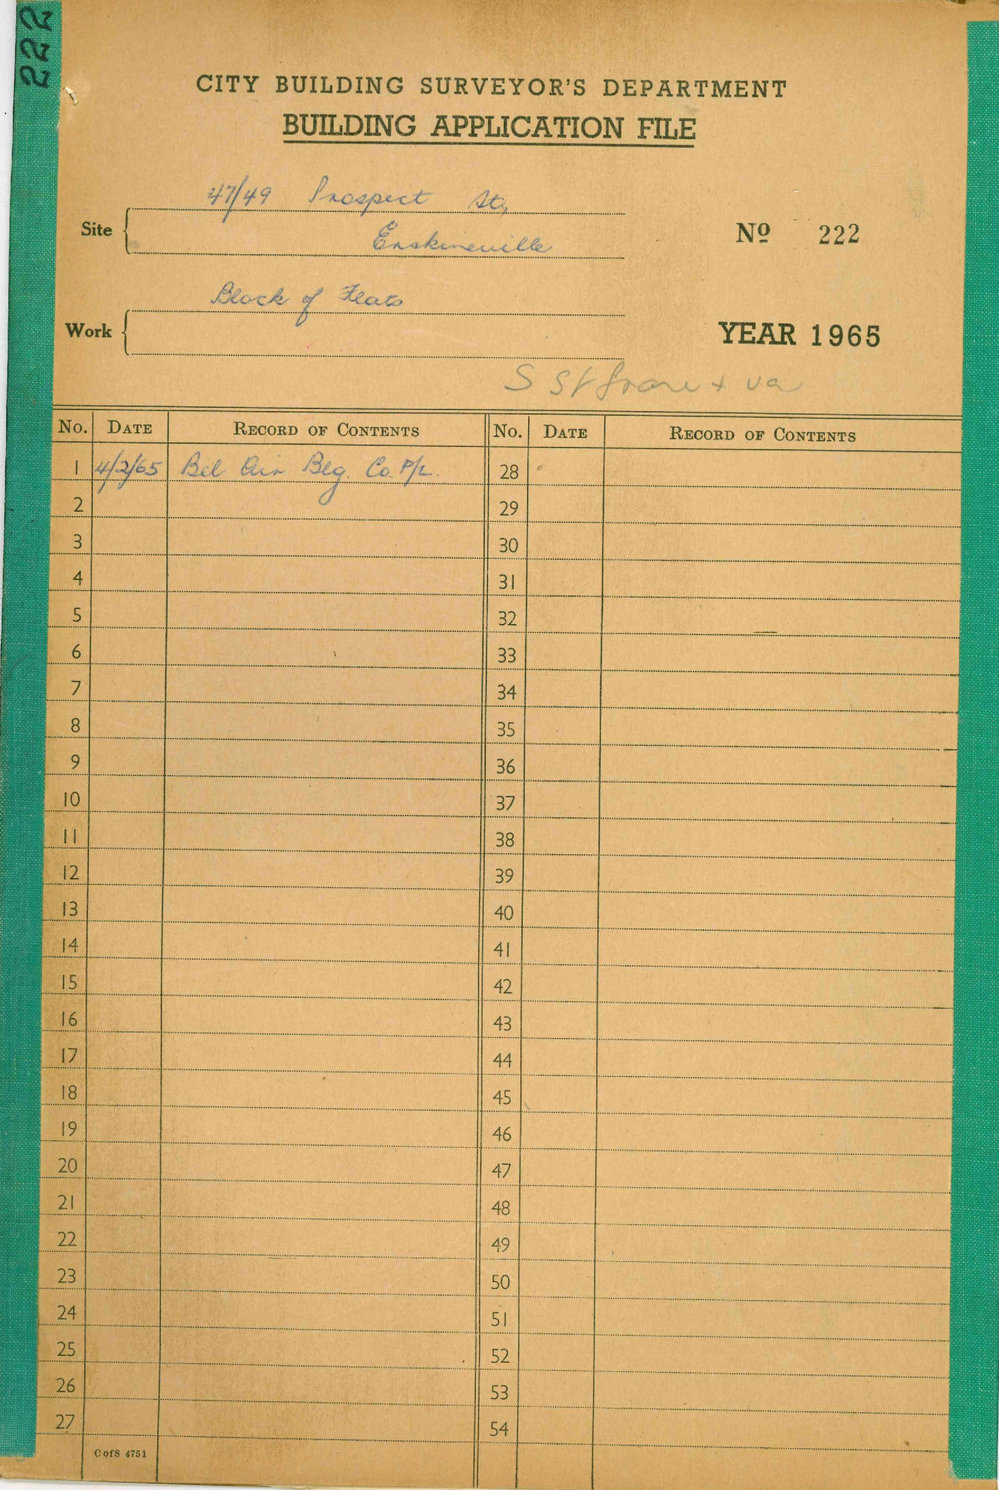 222
CITY BUILDING SURVEYOR'S DEPARTMENT
BUILDING APPLICATION FILE
47/49 Prospect St,
Site
Erskineville
Nº 222
Block of Flats
Work
YEAR 1965
No. DATE RECORD OF CONTENTS No. DATE RECORD OF CONTENTS
1 4/2/65 Bel Air Blg. Co. P/L. 28
2 29
3 30
4 31
5 32
6 33
7 34
8 35
9 36
10 37
11 38
12 39
13 40
14 41
15 42
16 43
17 44
18 45
19 46
20 47
21 48
22 49
23 50
24 51
25 52
26 53
27 54
C of S 4751